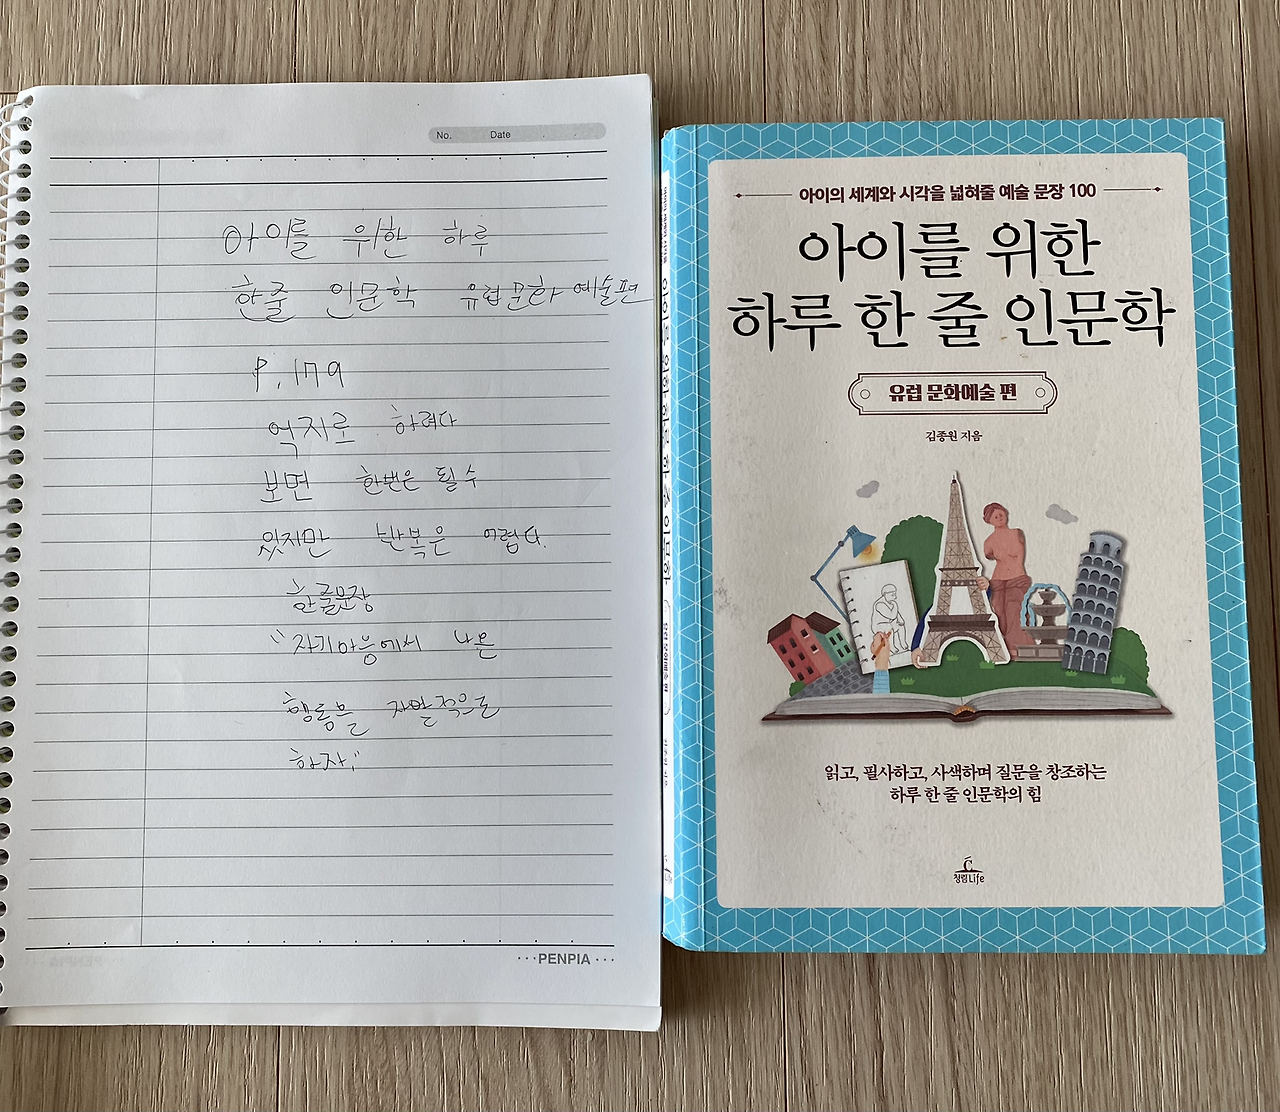 No. Date
아이를 위한 하루
한줄 인문학 유럽문화 예술편
P. 179
억지로 하려다
보면 한번은 될 수
있지만 반복은 어렵다.
한줄문장
"자기마음에서 나온
행동을 자발적으로
하자."
···PENPIA···
아이의 세계와 시각을 넓혀줄 예술 문장 100
아이를 위한
하루 한 줄 인문학
유럽 문화예술 편
김종원 지음
읽고, 필사하고, 사색하며 질문을 창조하는
하루 한 줄 인문학의 힘
청림Life